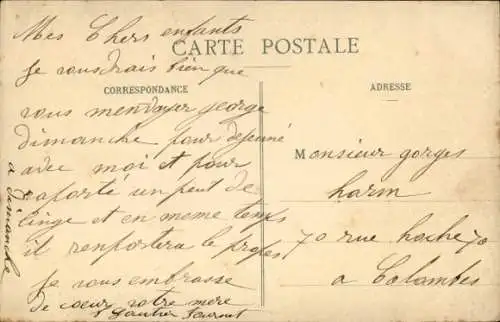 Mes Chers enfants
CARTE POSTALE
CORRESPONDANCE
ADRESSE
Je vousdrais bien que
vous menvoyer george
dimanche pour dejeuné
avec moi et pour
aporté un peut de
linge et en meme temps
il remportera le propes
Je vous embrasse
de coeur votre mere
Gautier
a dimanche
Monsieur gorges
harm
70 rue hoche 70
a Colambes